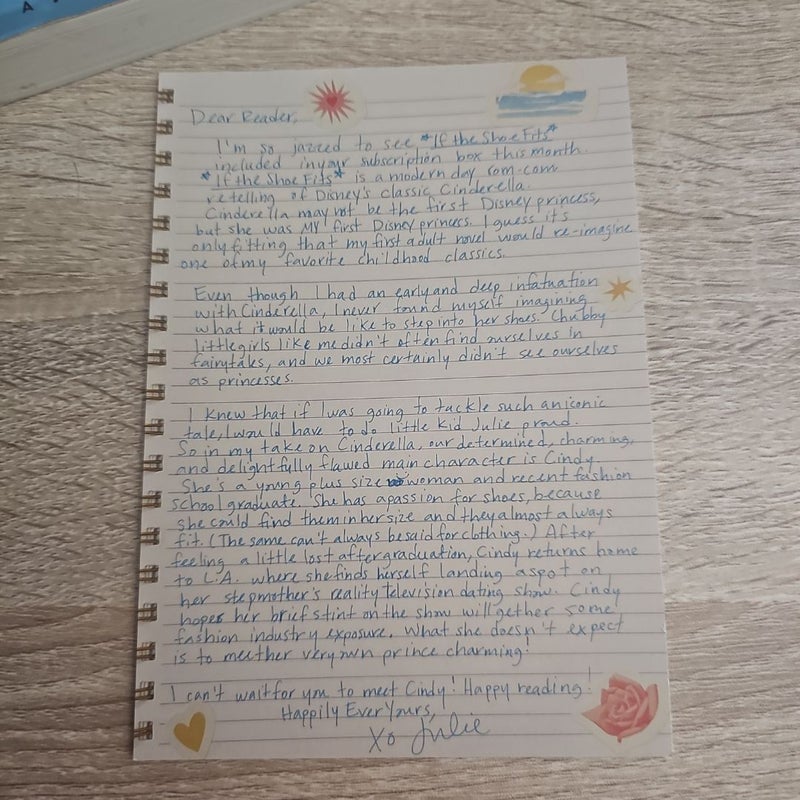 A
Dear Reader,
I'm so jazzed to see *If the Shoe Fits*
included in your subscription box this month.
*If the Shoe Fits* is a modern day rom-com
retelling of Disney's classic Cinderella.
Cinderella may not be the first Disney princess,
but she was MY first Disney princess. I guess it's
only fitting that my first adult novel would re-imagine
one of my favorite childhood classics.
Even though I had an early and deep infatuation
with Cinderella, I never found myself imagining
what it would be like to step into her shoes. Chubby
little girls like me didn't often find ourselves in
fairytales, and we most certainly didn't see ourselves
as princesses.
I knew that if I was going to tackle such an iconic
tale, I would have to do little kid Julie proud.
So in my take on Cinderella, our determined, charming,
and delightfully flawed main character is Cindy.
She's a young plus size woman and recent fashion
school graduate. She has a passion for shoes, because
she could find them in her size and they almost always
fit. (The same can't always be said for clothing.) After
feeling a little lost after graduation, Cindy returns home
to L.A. where she finds herself landing a spot on
her stepmother's reality television dating show. Cindy
hopes her brief stint on the show will get her some
fashion industry exposure. What she doesn't expect
is to meet her very own prince charming!
I can't wait for you to meet Cindy! Happy reading!
Happily Ever Yours,
Xo Julie